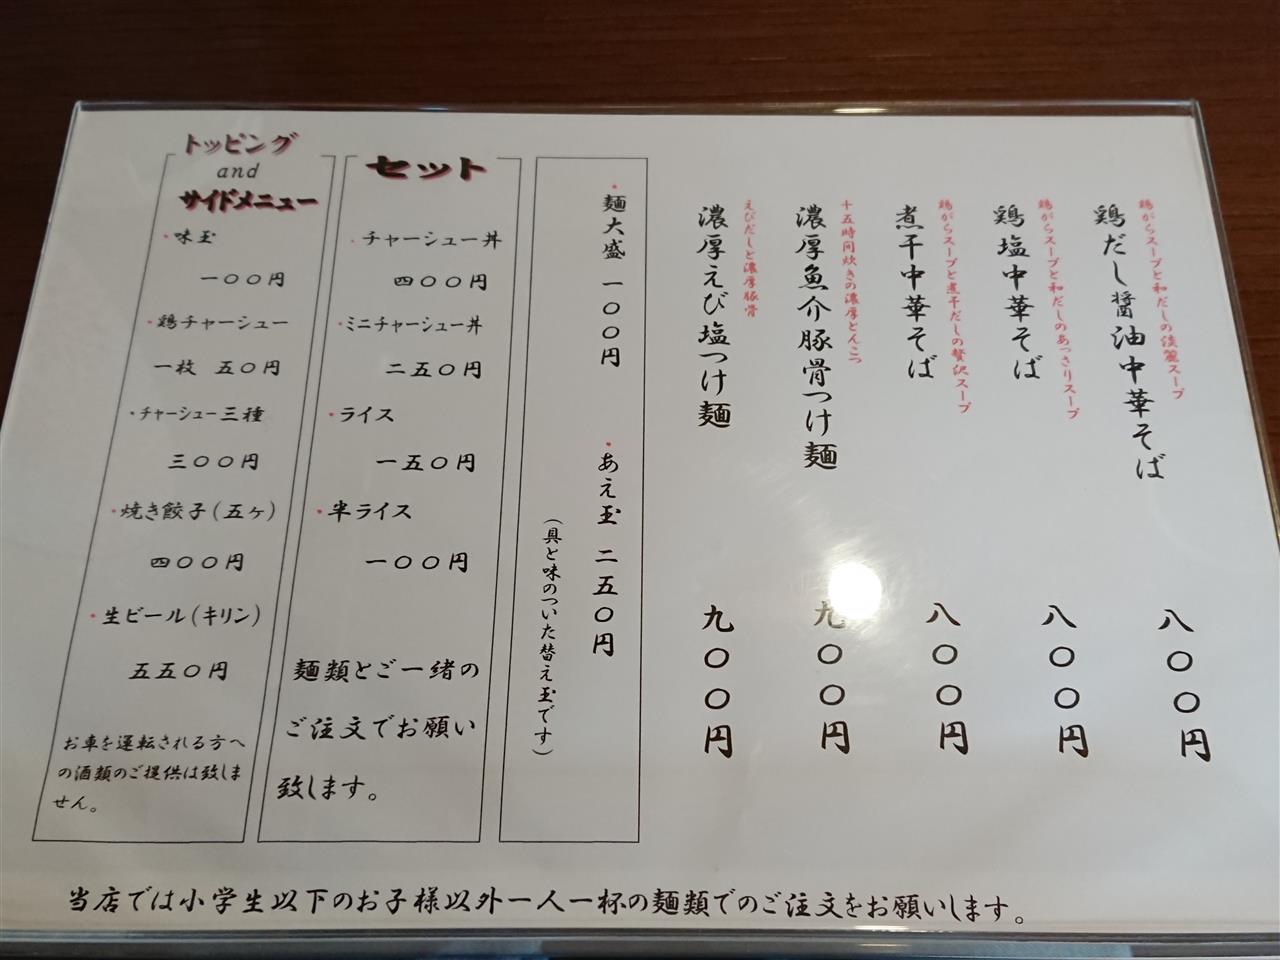 鶏がらスープと和だしの淡麗スープ
鶏だし醤油中華そば 八〇〇円
鶏がらスープと和だしのあっさりスープ
鶏塩中華そば 八〇〇円
鶏がらスープと煮干だしの贅沢スープ
煮干中華そば 八〇〇円
十五時間炊きの濃厚とんこつ
濃厚魚介豚骨つけ麺 九〇〇円
えびだしと濃厚豚骨
濃厚えび塩つけ麺 九〇〇円
・麺大盛 一〇〇円
・あえ玉 二五〇円
(具と味のついた替え玉です)
セット
・チャーシュー丼
四〇〇円
・ミニチャーシュー丼
二五〇円
・ライス
一五〇円
・半ライス
一〇〇円
麺類とご一緒の
ご注文でお願い
致します。
トッピング
and
サイドメニュー
・味玉
一〇〇円
・鶏チャーシュー
一枚 五〇円
・チャーシュー三種
三〇〇円
・焼き餃子(五ヶ)
四〇〇円
・生ビール(キリン)
五五〇円
お車を運転される方へ
の酒類のご提供は致しま
せん。
当店では小学生以下のお子様以外一人一杯の麺類でのご注文をお願いします。